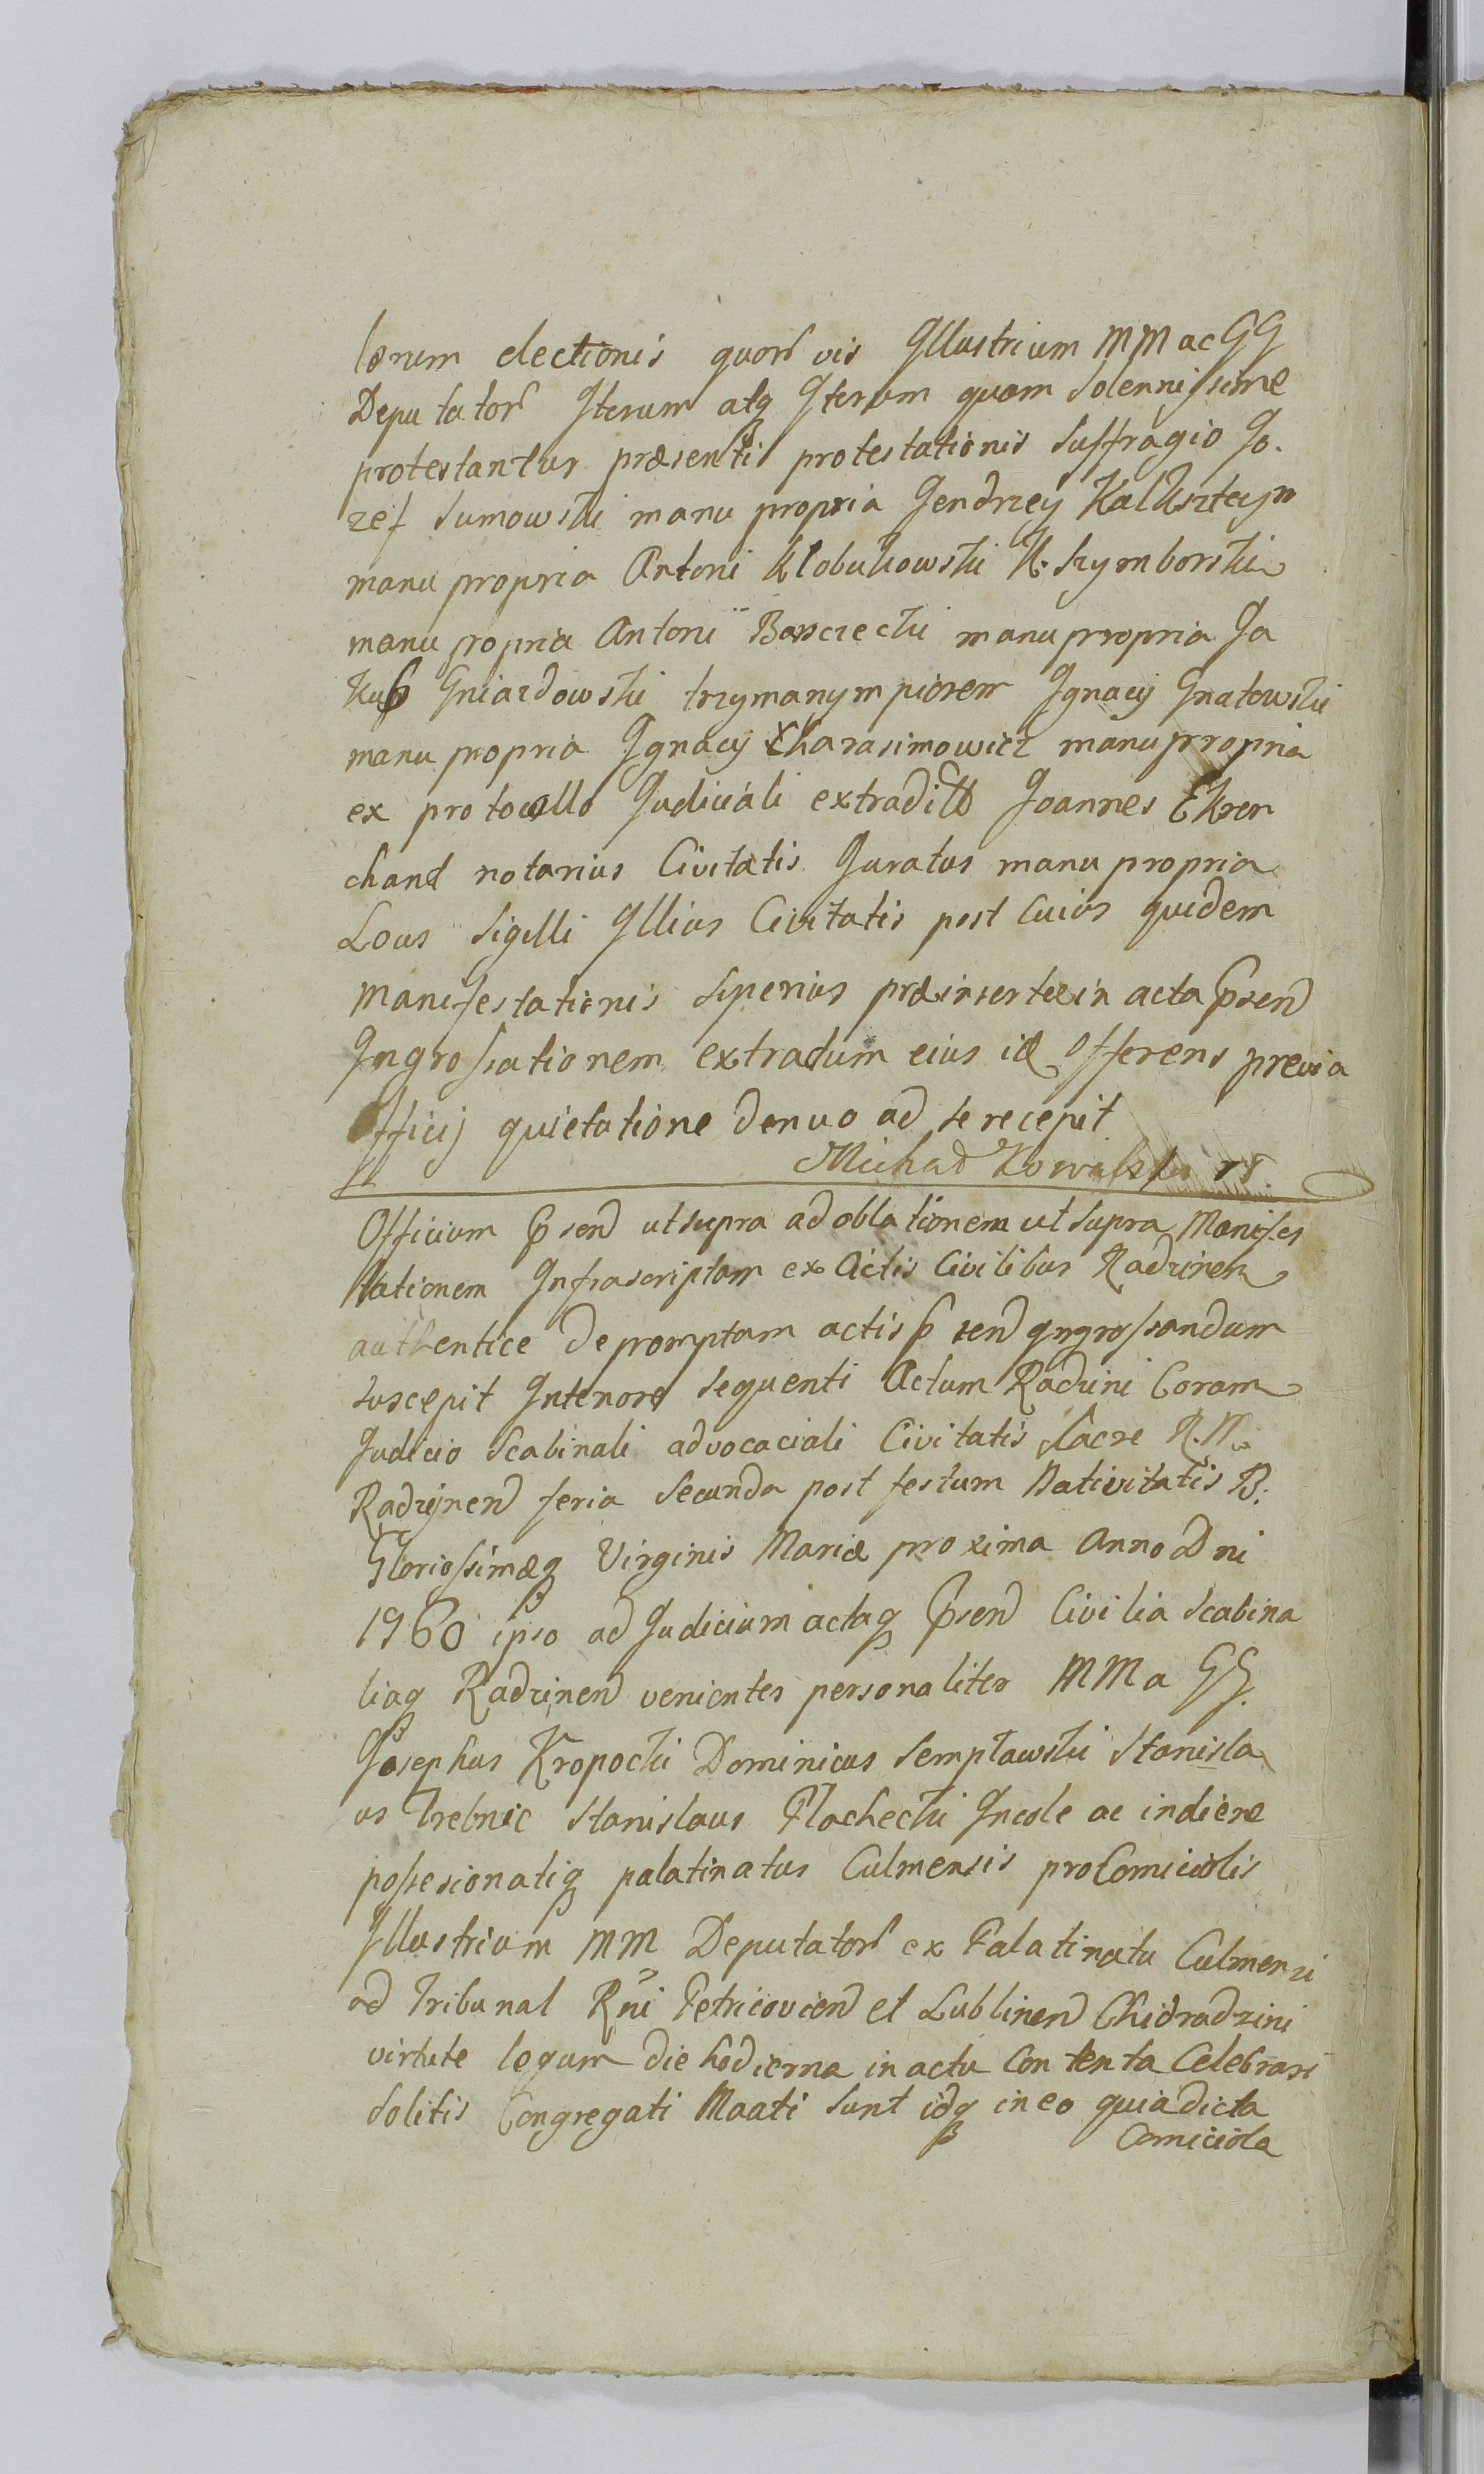 lorum electionis quor vis Jllustrium MM ac GG
Deputator Jterum atq Jterum quam Solennissime
protestantur præsentis protestationis suffragio Jo.
zef Sumowski manu propria Jendrzey Kalksztejn
manu propria Antoni Klobukowski K. Szymborski
manu propria Antoni manu propria Ja
kub Gniazdowski trzymanym piorem Jgnacij Gnatowski
manu propria Jgnacij Charasimowicz manu propria
ex protocollo Judiciali extradidit Joannes Ekren
chand notarius Civitatis Juratus manu propria
Locus Sigilli Jllius Civitatis post Cuius quidem
Manifestationis Superius præinsertæ in acta psend
Jngrossationem extradum eius id Offerens previa
Officij quietatione denuo ad se recepit
Michad Kowalski
Officium psend ut supra ad oblationem ut supra Manifes
tationem Jnfrascriptam ex Actis Civilibus Radzinen
authentice depromptam actis psend Jngrossandum
suscepit Jntenore sequenti Actum Radzini Coram
Judicio Scabinali advocaciali Civitatis Sacre R. M
Radzijnend feria Secunda post festum Nativitatis B.
Gloriossimæq Virginis Mariæ proxima Anno Dni
1760 ipso ad Judicium actaq psend Civilia Scabina
liaq Radzinend venientes personaliter MM a GG.
Josephus Kropocki Dominicus Semplawski Stanisla
us Trebnic Stanislaus Plachecki Jncole ac indiene
possesionatiq palatinatus Culmensis pro Comiciolis
Jllustrium MM Deputator ex Palatinatu Culmensi
ad Tribunal Rni Petricoviend et Lublinend Chic radzini
virtute legum die hodierna in actu Contenta Celebrari
Solitis Congregati Maati Sunt idq in eo quia dicta
Comiciola